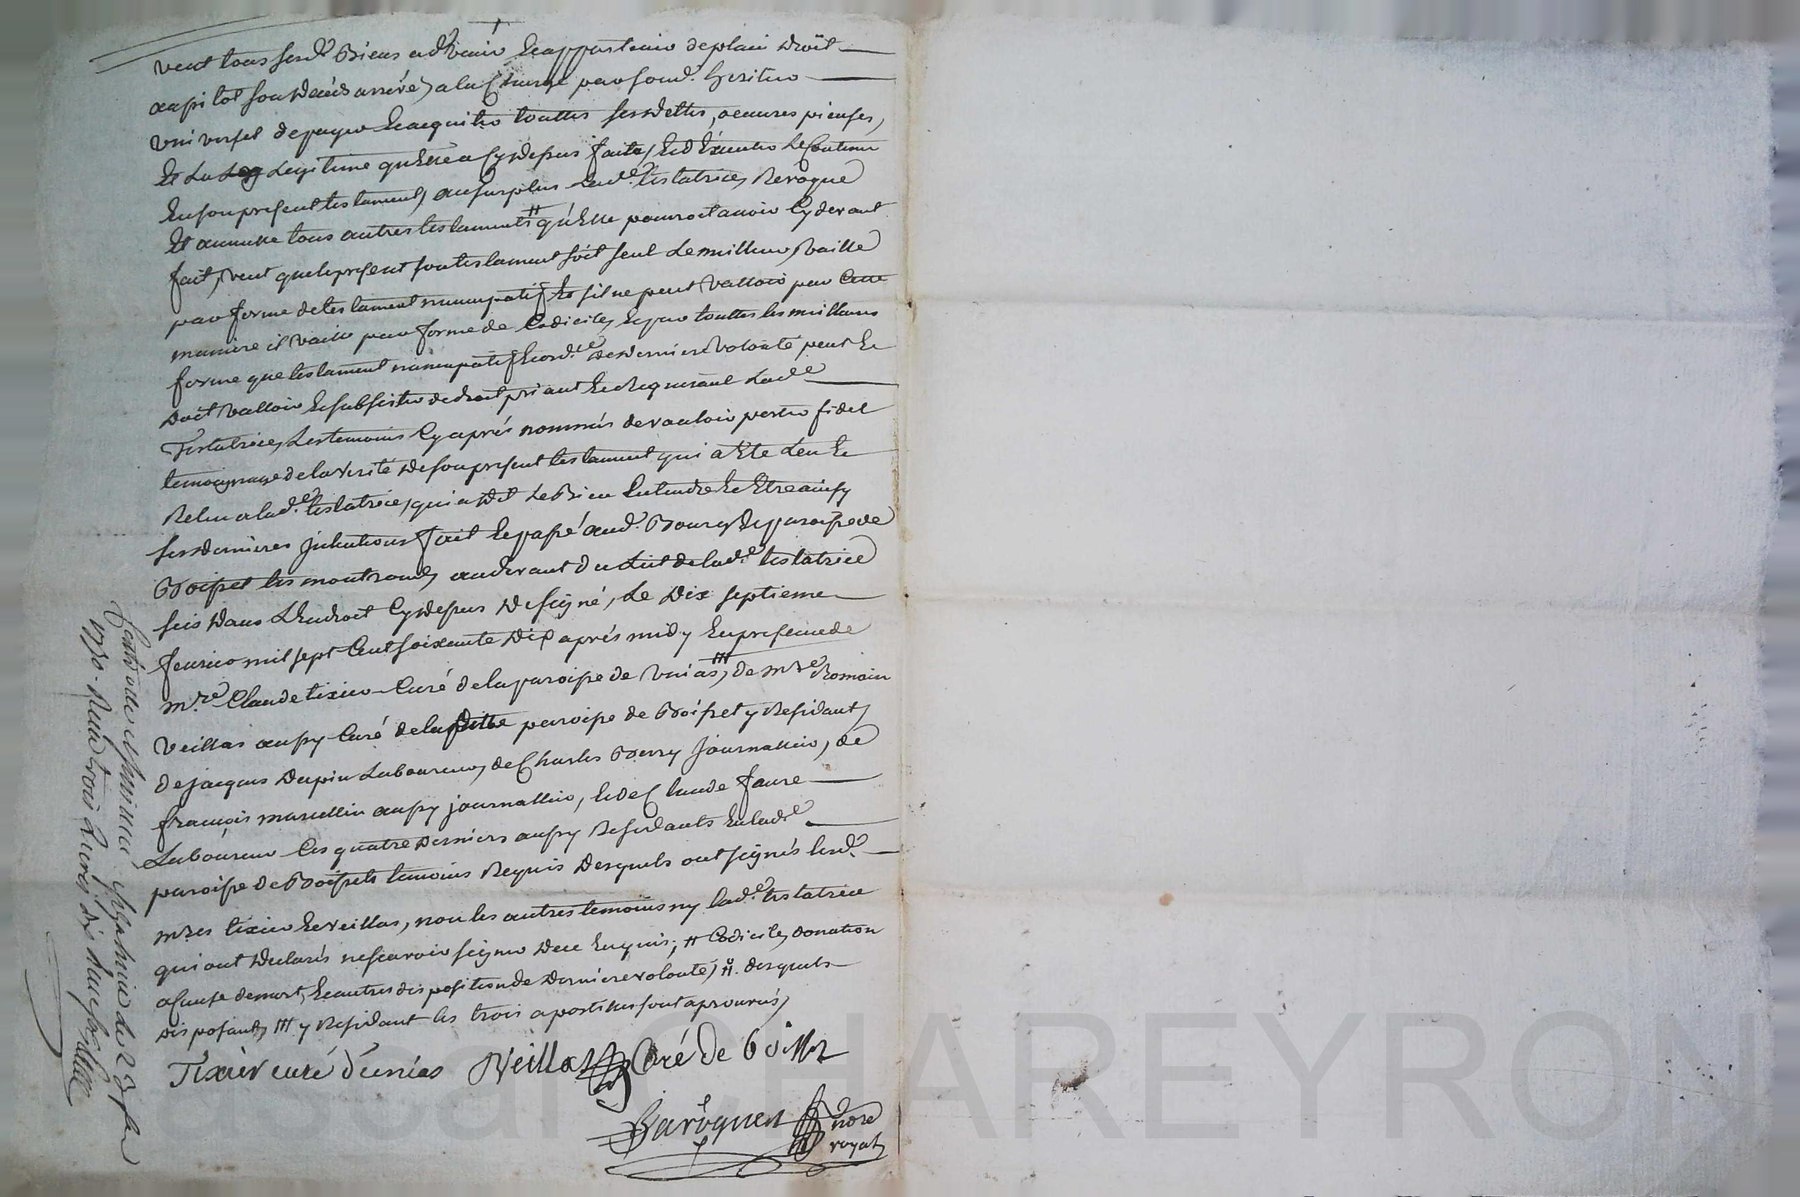 veut tous sesd. Biens advenir Et appartenir de plain Droit
aussi tot son Deces arrivé, a la Charge par sond. heritier
universel de payer Et acquitter touttes ses Dettes, oeuvres pieuses,
Et La Leg Legitime qu'Elle a Cy Dessus faite, Et d'Executer Le Contenu
En son present testament, au surplus Lad.e testatrice Revoque
Et annulle tous autres testaments # qu'Elle pourroit avoir Cy devant
fait, veut que le present son testament soit seul Le meilleur, vaille
par forme de testament nuncupatif, Et s'il ne peut valloir par Cette
maniere il vaille par forme de Codicile, Et par touttes les meilleurs
forme que testament nuncupatif Et ord.ce De Derniere volonté peut Et
Doit valloir Et subsister de droit priant Et Requerant Lad.e
Testatrice, Les temoins Cy aprés nommés de vouloir porter fidel
temoignage de la verité De son present testament qui a Eté Leu Et
Releu a lad.e testatrice, qui a Dit Le Bien Entendre Et Etre ainsy
ses Dernieres Intentions fait Et passé aud. Bourg Et paroisse de
Boisset les montrond, au devant du Lit de lad.e testatrice
sis Dans L'Endroit Cy Dessus Designé, Le Dix septieme
fevrier mil sept Cent soixante Dix aprés midy En presence de
m.re Claude tixier Curé de la paroisse de Unias, ||| de m.re Romain
Veillas aussy Curé de laditte paroisse de Boisset y Residant,
de jacques Dupin Laboureur, de Charles Berry Journallier, de
françois marcellin aussy journallier, Et de Claude faure
Laboureur Les quatre Derniers aussy Residants En lad.e
paroisse de Boisset, temoins Requis Desquels ont signés lesd.
m.res tixier Et veillas, non les autres temoins ny lad.e testatrice
qui ont Declarés ne scavoir signer De ce Enquis; # Codicile, donation
a Cause de mort, Et autres disposition de Derniere volonté, desquels
Disposant, ||| y Residant les trois apostilles sont aprouvés,
Tixier curé d'unias Veillas Curé de boisset
Baroquen nore
royal
Controllé a
1770. Reçu trois Livres dix huit sols
CHAREYRON